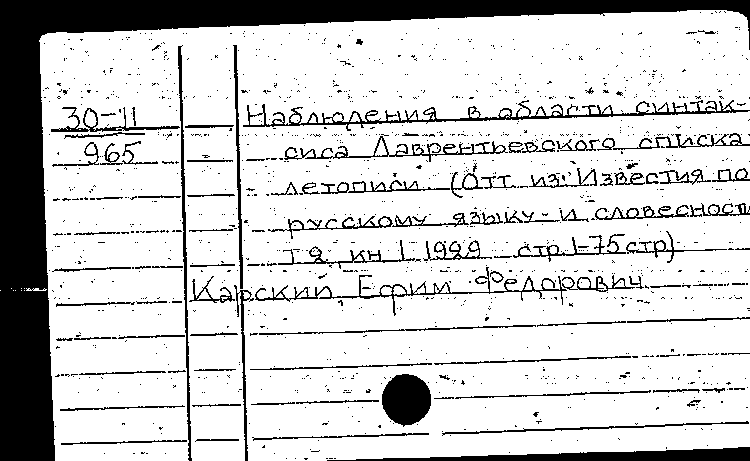 30-11
965
Наблюдения в области синтак-
сиса Лаврентьевского списка
летописи (Отт. из: Известия по
русскому языку и словесност
т 2, кн 1 1929 стр. 1-75 стр)
Карский, Ефим Федорович